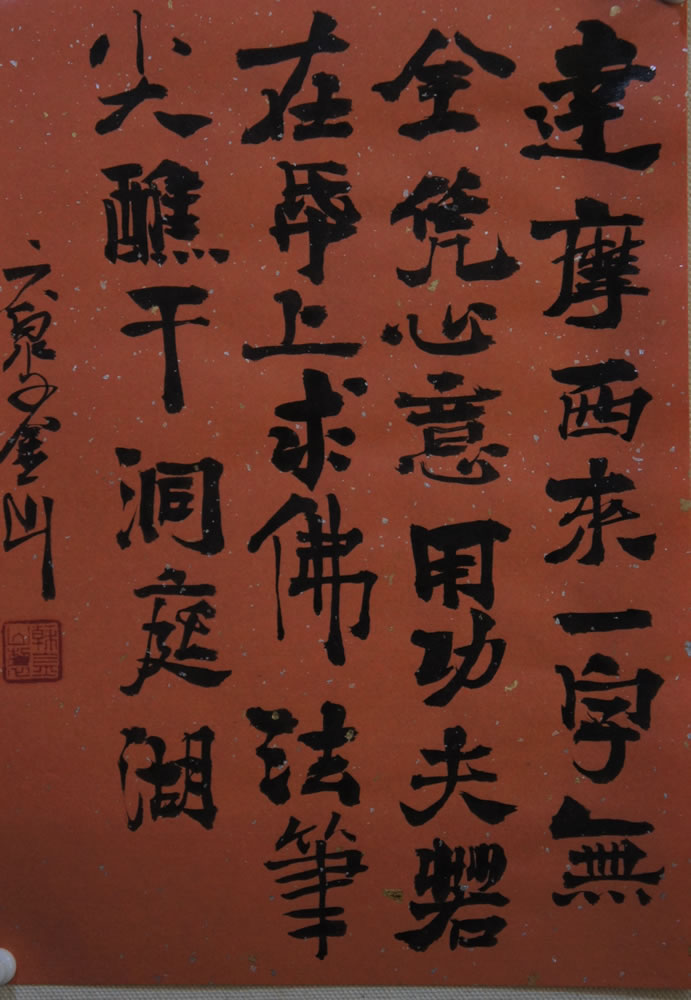 達摩西來一字無
全凭心意用功夫若
在帋上求佛法筆
尖醮干洞庭湖
泉金山